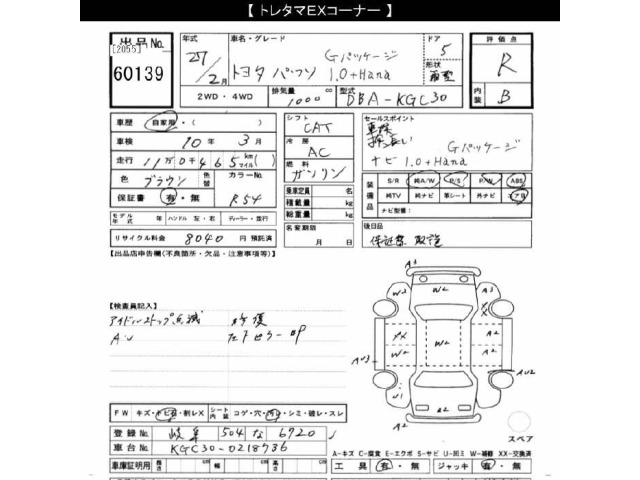 【 トレタマEXコーナー 】
出品No. 年式 車名・グレード Gパッケージ ドア 5 評価点
[2055] 27/2月 トヨタ パッソ 1.0+Hana 形状 R
60139 2WD・4WD 排気量 1000 型式 DBA-KGC30 内装 B
車歴 自家用・( ) シフト CAT セールスポイント
車検 10年 3月 冷房 AC 車検長い Gパッケージ
走行 11万0千465 km マイル ( ) 燃料 ガソリン ナビ 1.0+Hana
色 ブラウン 色替 カラーNo. 乗車定員 名 装備品 S/R 純A/W P/S P/W ABS
保証書 有・無 R54 積載量 kg 純TV 純ナビ 革シート 外ナビ エアB
総重量 kg ナビ型番:
モデル年式 年 ハンドル 左・右 ディーラー・並行 名変期限 後日品
リサイクル料金 8040 円 預託済 月 日 保証書 取説
【出品店申告欄(不良箇所・欠品・注意事項等)】
【検査員記入】
アイドルストップ点滅 修復
AU
FW キズ・トビ石・割レX シート内装 コゲ・穴・汚レ・シミ・破レ・スレ
A3
W2 A3
W2
XX XX A2
W2 W2 A2
AU3 AU2
U1 A2
W2 A2
スペア
登録No. 岐阜 504 な 6720
車台No. KGC30-0218736 A-キズ C-腐食 E-エクボ S-サビ U-凹ミ W-補修 XX-交換済
車庫証明用 長さ cm 幅 cm 高さ cm 工具 有・無 ジャッキ 有・無